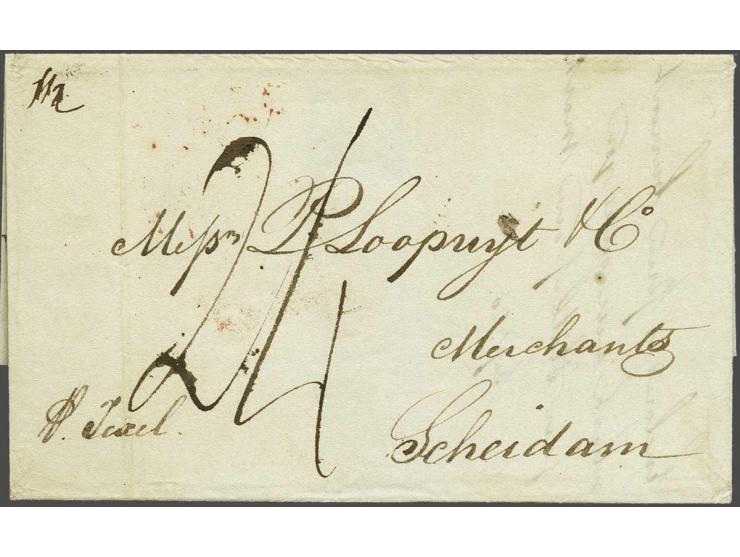 1½
24
Messrs P. Loopuyt & Co
Merchants
Scheidam
p. Texel.